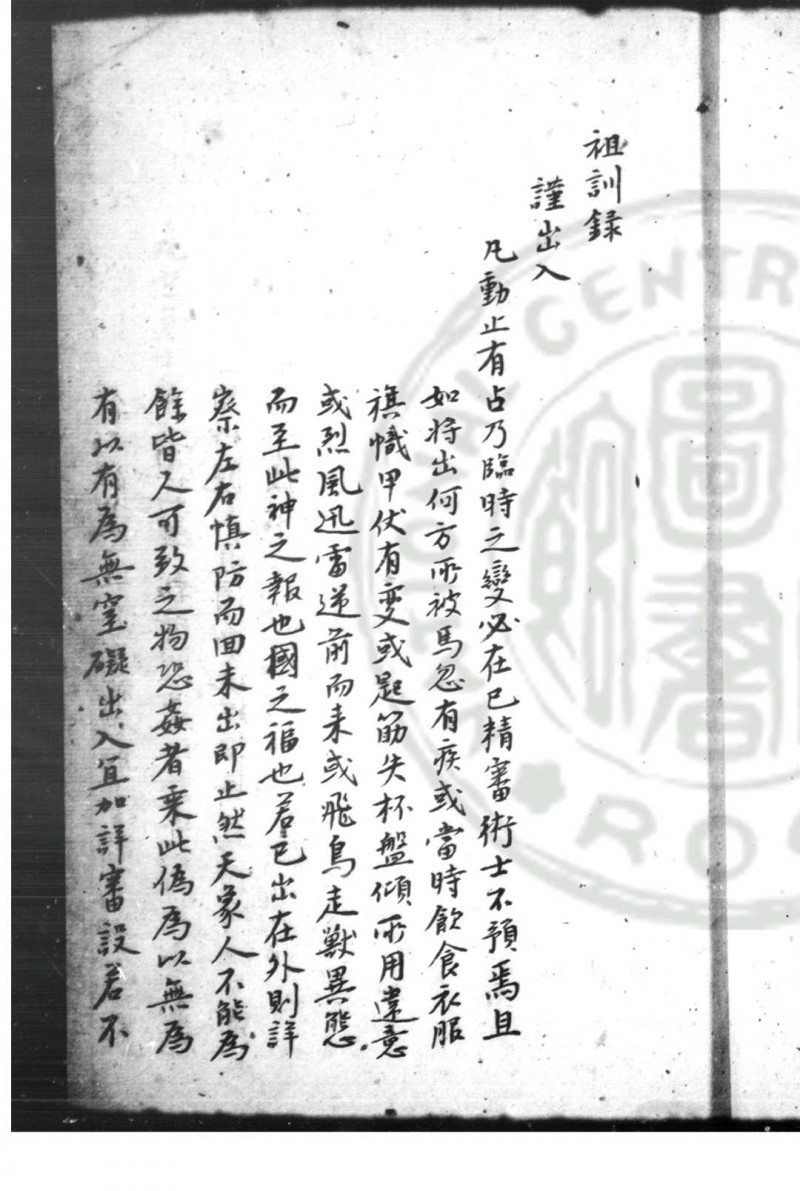 祖訓録
謹出入
凡動止有占乃臨時之變必在己精審術士不預焉且
如将出何方所被馬忽有疾或當時飲食衣服
旗幟甲伏有变或匙筯失杯盤傾所用違意
或烈風迅雷逆前而来或飛鳥走獸異態
而至此神之報也國之福也若已出在外則詳
察左右慎防而回未出即止然天象人不能為
餘皆人可致之物恐姦者乗此偽為以無為
有以有為無窒礙出入宜加詳審設若不
圖書
CENTR
RO